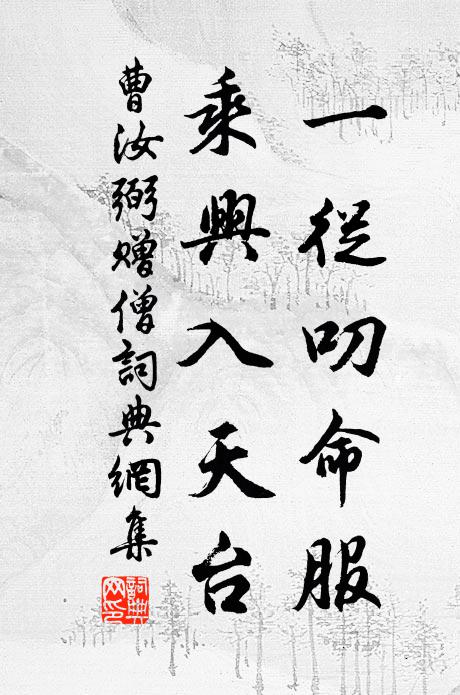 一從叨命服
乘興入天台
曹汝弼贈僧詞典網集